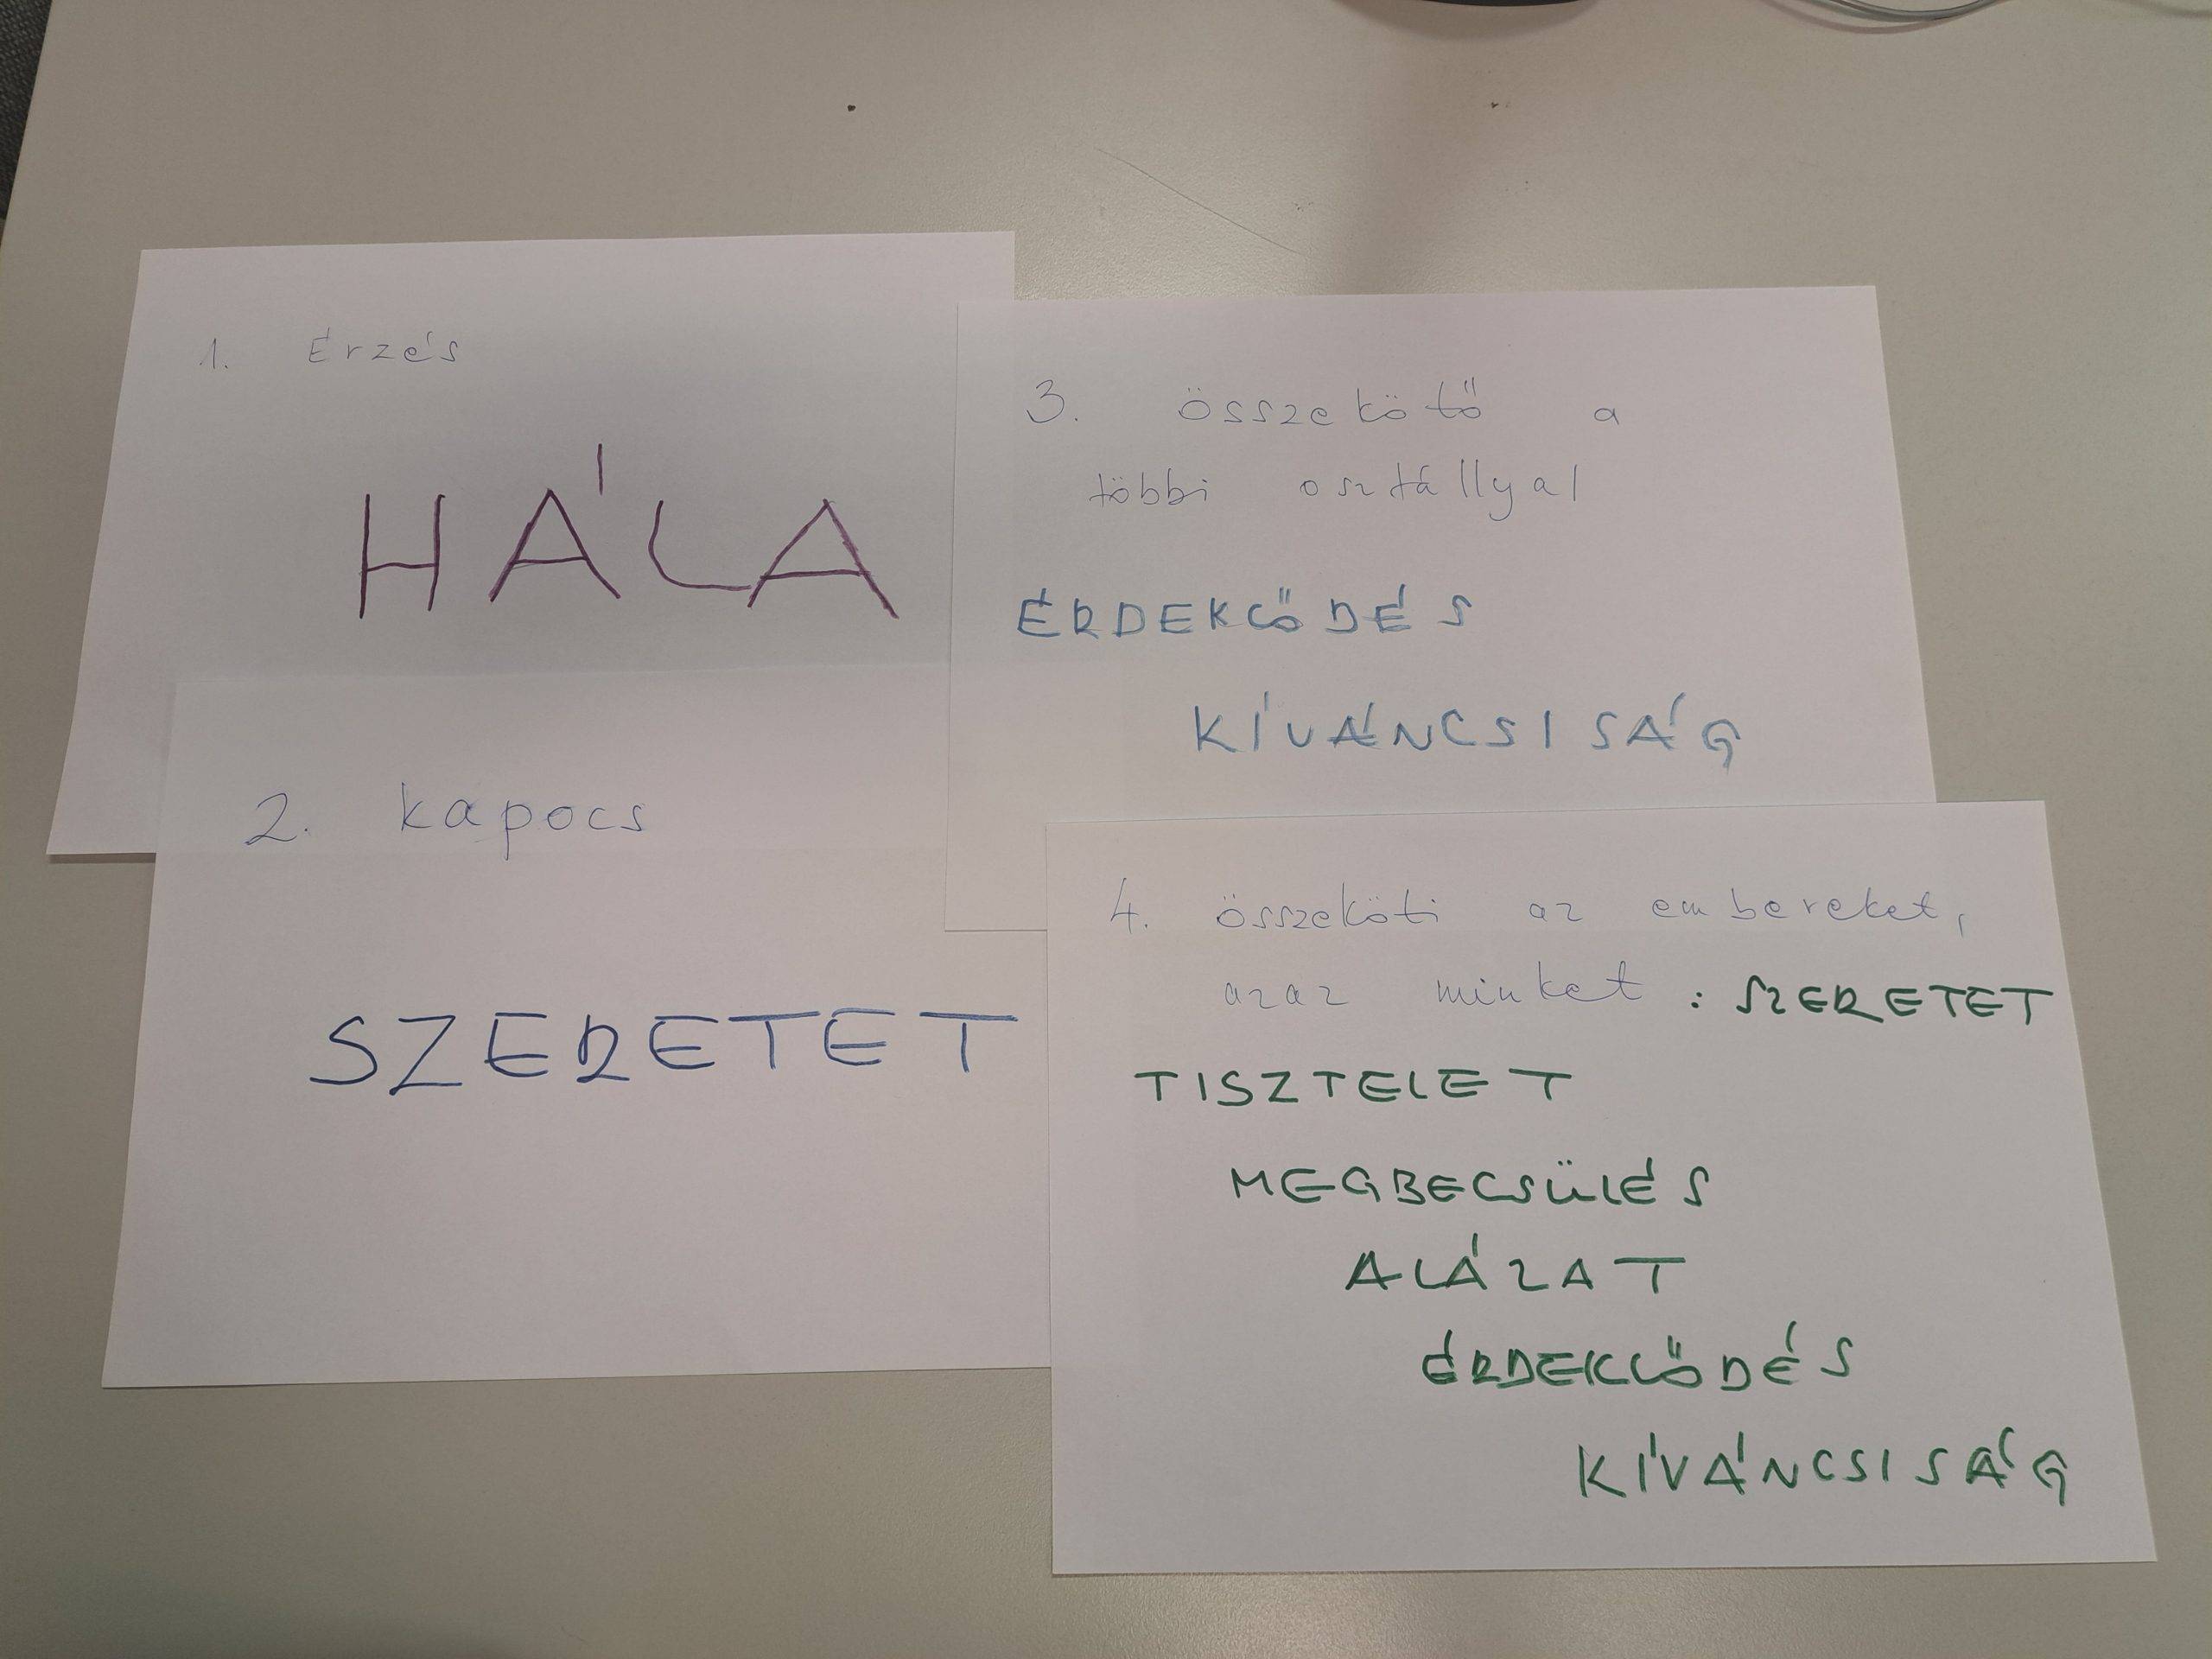 1. Érzés
HÁLA
2. kapocs
SZERETET
3. összekötő a
többi osztállyal
ÉRDEKLŐDÉS
KÍVÁNCSISÁG
4. összeköti az embereket,
azaz minket : SZERETET
TISZTELET
MEGBECSÜLÉS
ALÁZAT
ÉRDEKLŐDÉS
KÍVÁNCSISÁG